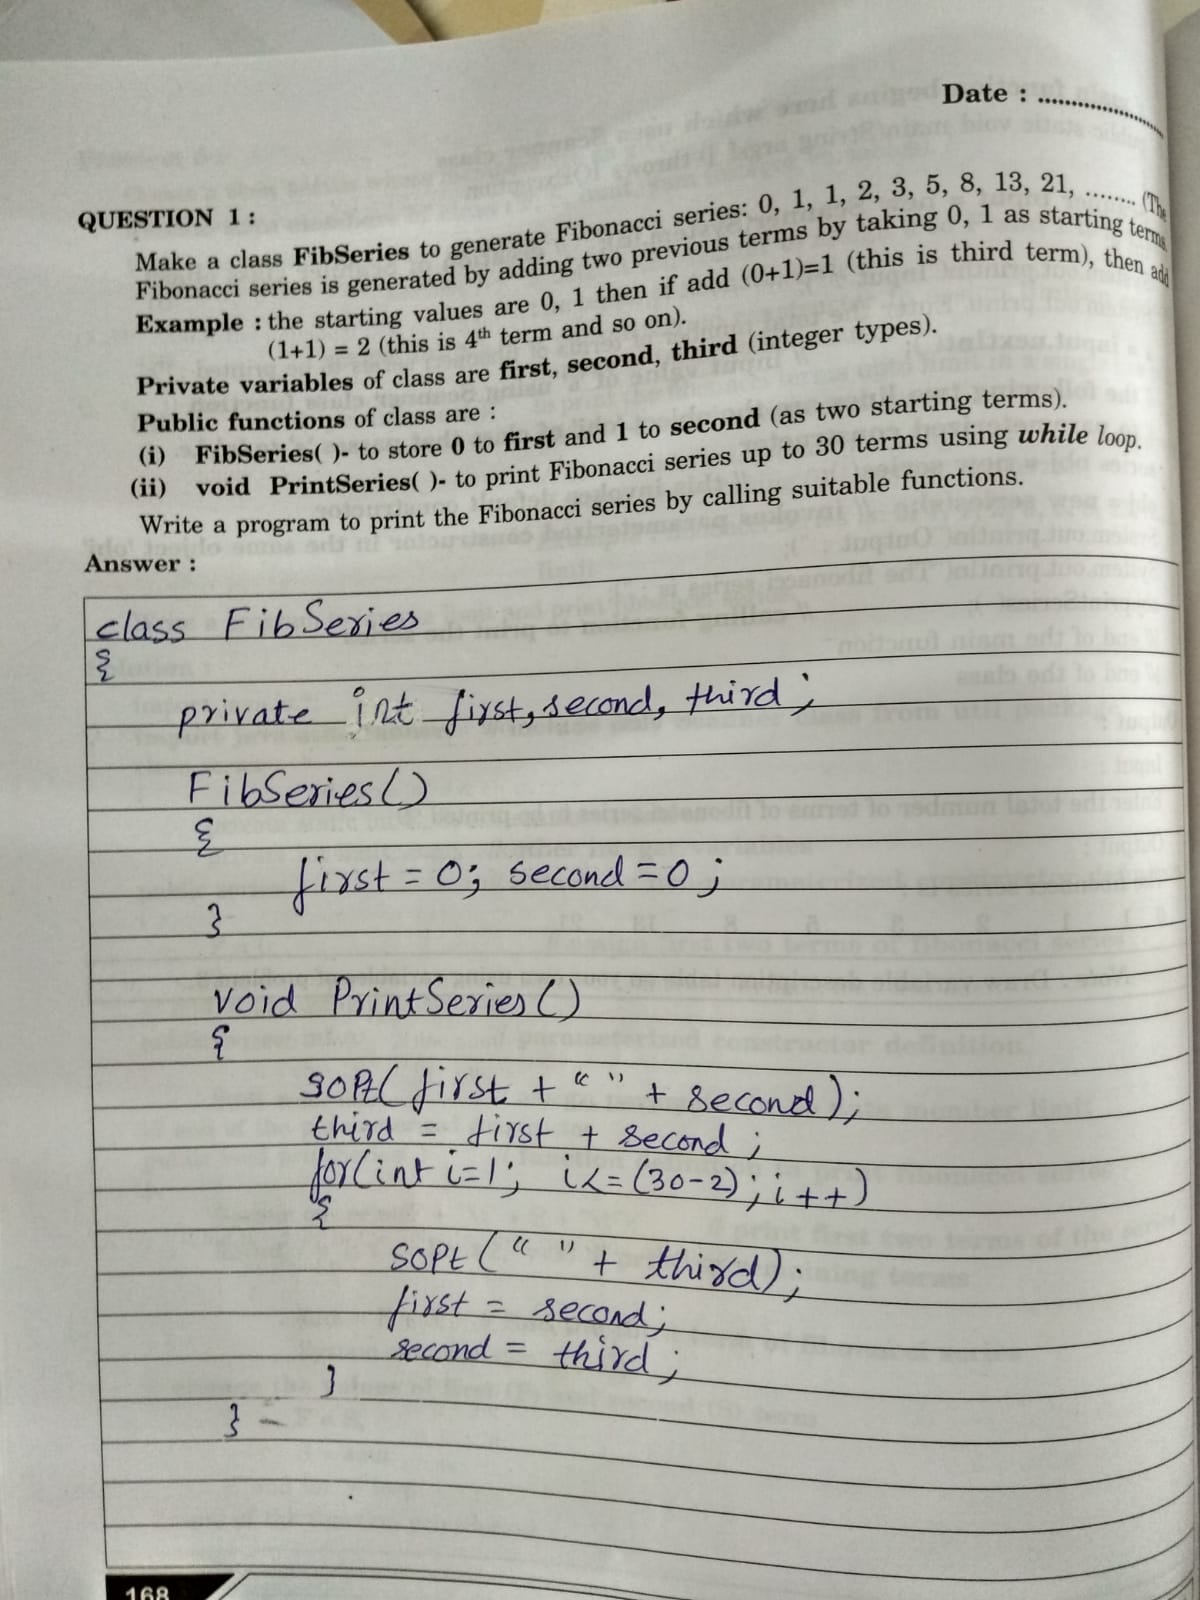 Date : ........................
QUESTION 1 :
Make a class FibSeries to generate Fibonacci series: 0, 1, 1, 2, 3, 5, 8, 13, 21, ........ (The
Fibonacci series is generated by adding two previous terms by taking 0, 1 as starting terms
Example : the starting values are 0, 1 then if add (0+1)=1 (this is third term), then add
(1+1) = 2 (this is 4th term and so on).
Private variables of class are first, second, third (integer types).
Public functions of class are :
(i) FibSeries( )- to store 0 to first and 1 to second (as two starting terms).
(ii) void PrintSeries( )- to print Fibonacci series up to 30 terms using while loop.
Write a program to print the Fibonacci series by calling suitable functions.
Answer :
class FibSeries
{
private int first, second, third;
FibSeries()
{
first = 0; second = 0;
}
void PrintSeries()
{
SOPt( first + " " + second);
third = first + second;
for(int i=1; i<=(30-2); i++)
{
SOPt (" " + third);
first = second;
second = third;
}
}
168